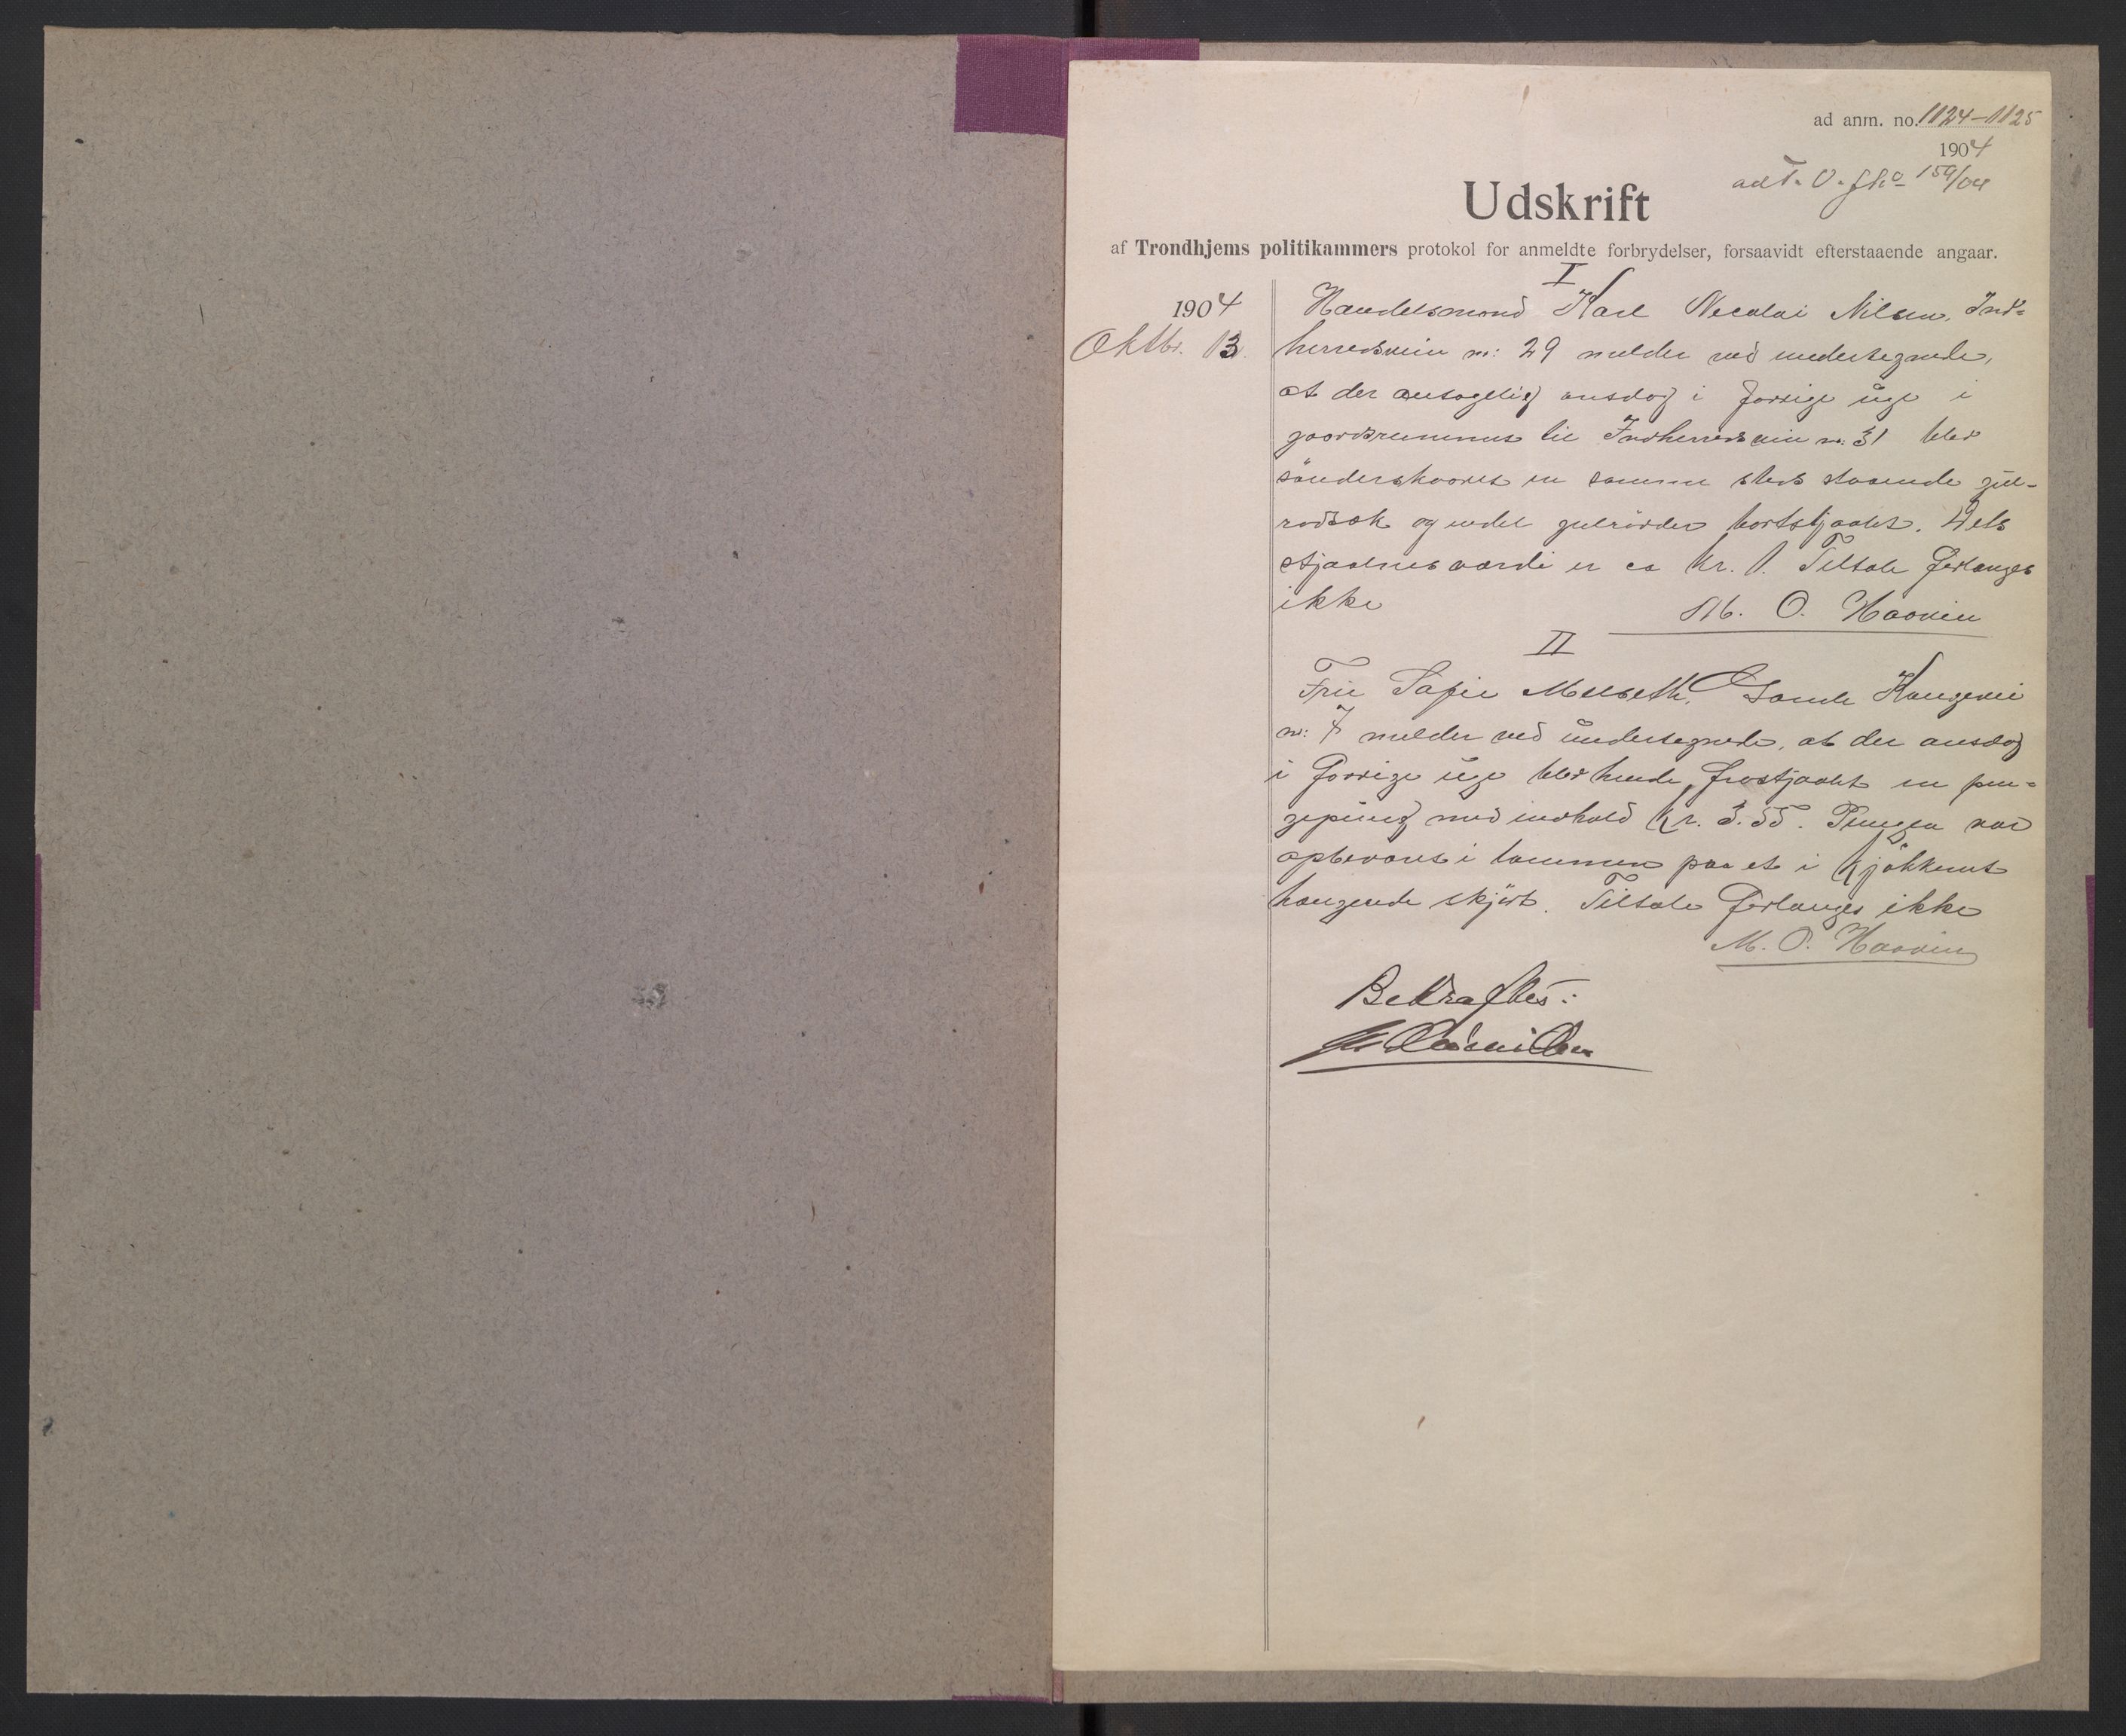 ad anm. no. 1124-1125
1904
159/04
Udskrift
af Trondhjems politikammers protokol for anmeldte forbrydelser, forsaavidt efterstaaende angaar.
I
1904
Oktbr. 13.
Handelsmand Karl Necolai Nilsen, Ind=
herredsvein nr: 29 melder ved undertegnede,
at der antagelig onsdag i forrige uge i
gaardsrummet til Indherredsvein nr: 31 blev
sönderskaaret en samme steds staaende gul-
rodsæk og endel gulrödder bortstjaalet. Dets
stjaalnes værdi er ca Kr. 1. Tiltale forlanges
ikke
M. O. Haavin
II
Fru Sofie Melseth, Gamle Kongevei
nr: 7 melder ved undertegnede, at der onsdag
i forrige uge blev hende frastjaalet en pen=
gepung med indhold Kr. 3.55. Pungen var
opbevaret i lommen paa et i Kjökkenet
hængende skjört. Tiltale forlanges ikke
M. O. Haavin
Bekræftes: